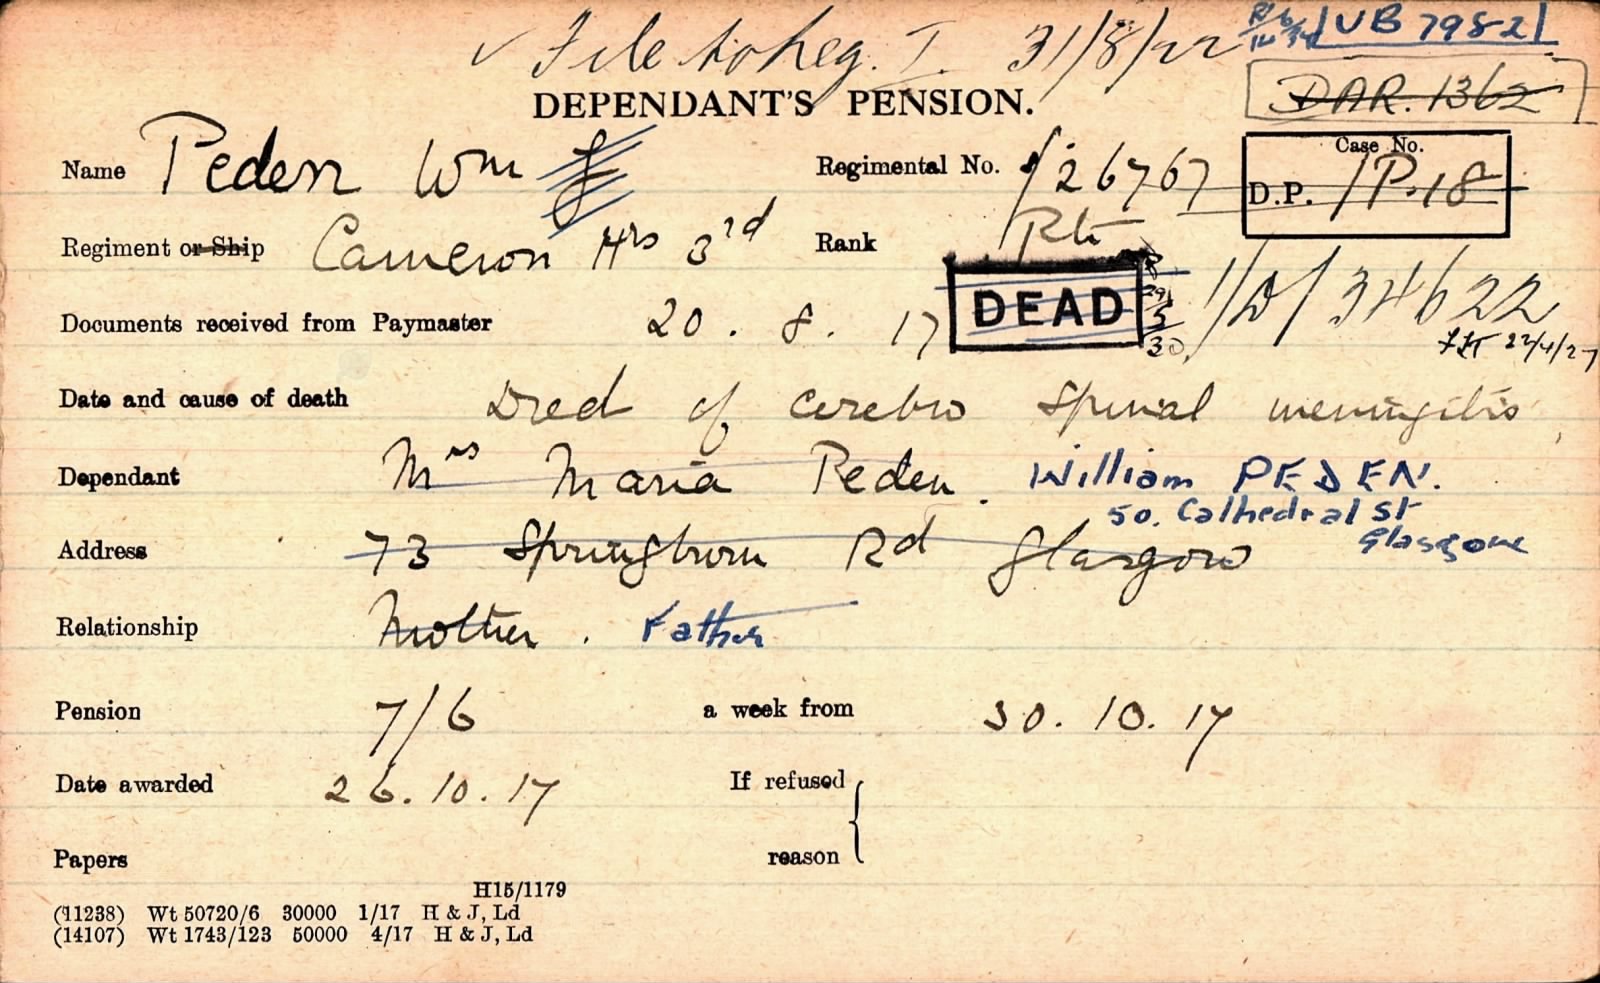 File to Reg. I. 31/8/22 UB 7952
DEPENDANT'S PENSION. DAR. 1362
Name Peden Wm J Regimental No. S/26767 Case No. D.P. 1P.18
Regiment or Ship Cameron Hrs 3rd Rank Pte
Documents received from Paymaster 20.8.17 DEAD 29/5/30 1/D/34622
22/4/27
Date and cause of death Died of cerebro spinal meningitis
Dependant Mrs Maria Peden. William PEDEN.
50. Cathedral St
Glasgow
Address 73 Springburn Rd Glasgow
Relationship Mother. Father
Pension 7/6 a week from 30.10.17
Date awarded 26.10.17 If refused
Papers reason
H15/1179
(11238) Wt 50720/6 30000 1/17 H & J, Ld
(14107) Wt 1743/123 50000 4/17 H & J, Ld